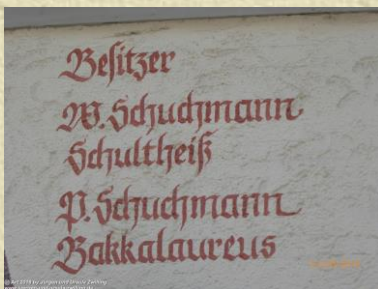 Besitzer
W. Schuchmann
Schultheiß
P. Schuchmann
Bakkalaureus